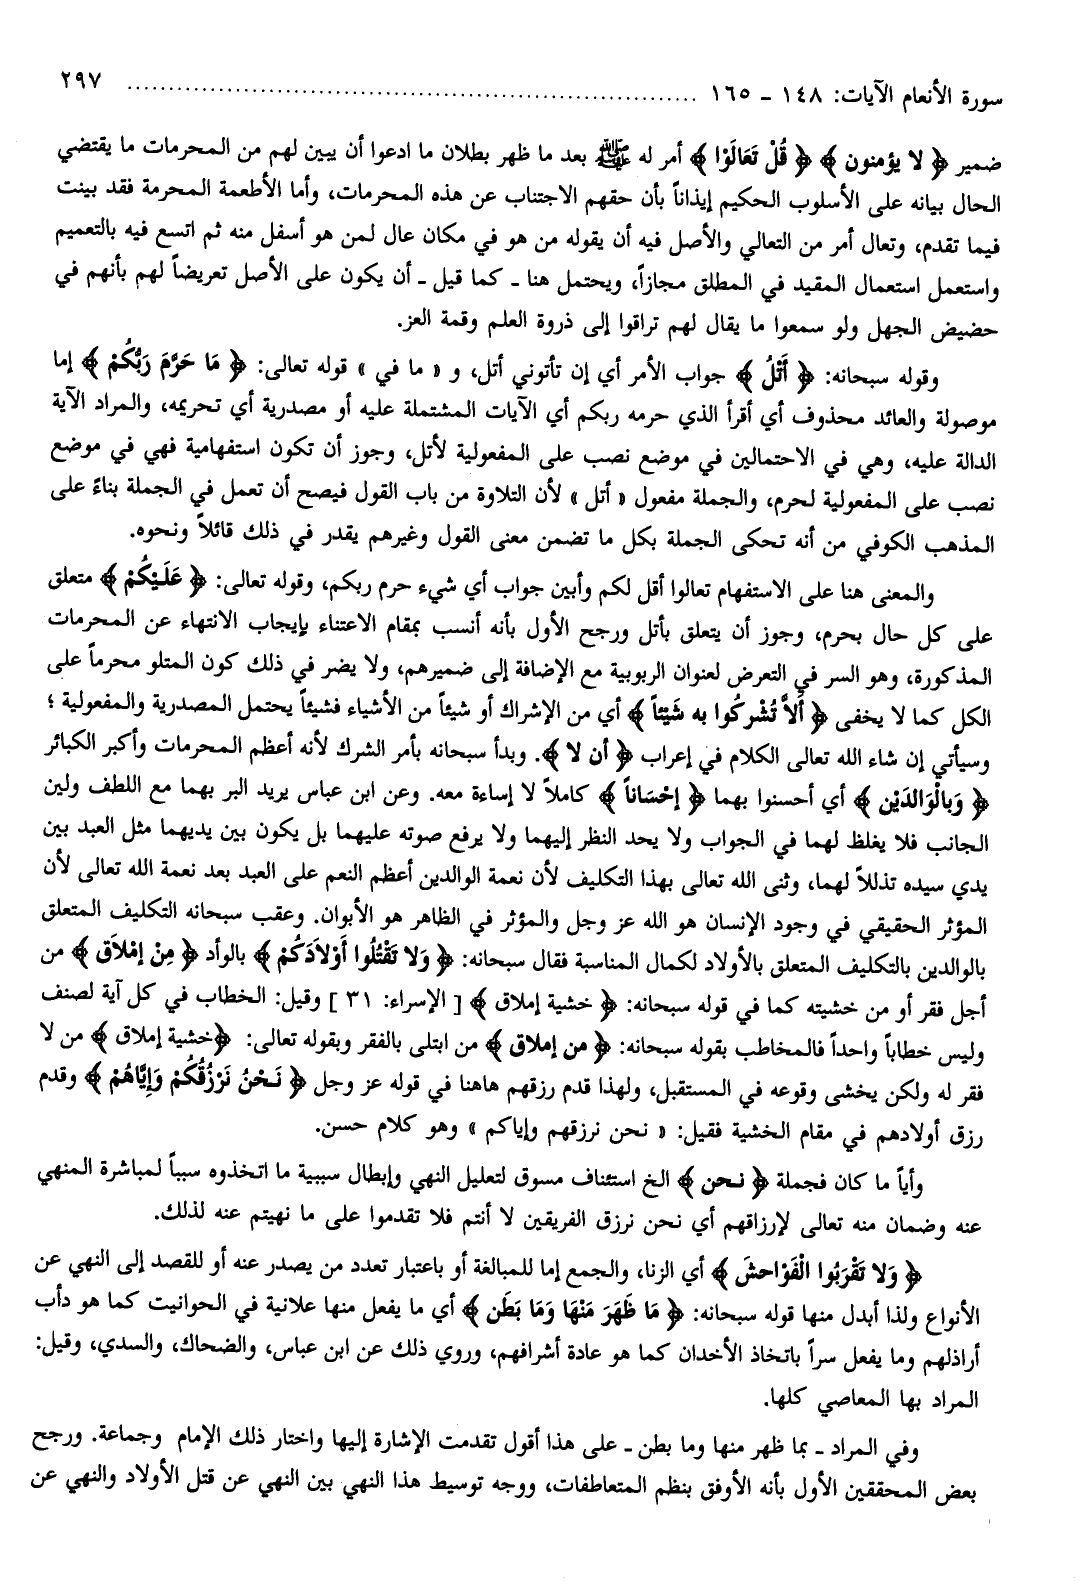 سورة الأنعام الآيات: ١٤٨ ـ ١٦٥ ........................................................ ٢٩٧
ضمير ﴿ لا يؤمنون ﴾ ﴿ قُلْ تَعَالَوْا ﴾ أمر له ﷺ بعد ما ظهر بطلان ما ادعوا أن يبين لهم من المحرمات ما يقتضي
الحال بيانه على الأسلوب الحكيم إيذاناً بأن حقهم الاجتناب عن هذه المحرمات، وأما الأطعمة المحرمة فقد بينت
فيما تقدم، وتعال أمر من التعالي والأصل فيه أن يقوله من هو في مكان عال لمن هو أسفل منه ثم اتسع فيه بالتعميم
واستعمل استعمال المقيد في المطلق مجازاً، ويحتمل هنا ـ كما قيل ـ أن يكون على الأصل تعريضاً لهم بأنهم في
حضيض الجهل ولو سمعوا ما يقال لهم تراقوا إلى ذروة العلم وقمة العز.
وقوله سبحانه: ﴿ أَتْلُ ﴾ جواب الأمر أي إن تأتوني أتل، و « ما في » قوله تعالى: ﴿ مَا حَرَّمَ رَبُّكُمْ ﴾ إما
موصولة والعائد محذوف أي أقرأ الذي حرمه ربكم أي الآيات المشتملة عليه أو مصدرية أي تحريمه، والمراد الآية
الدالة عليه، وهي في الاحتمالين في موضع نصب على المفعولية لأتل، وجوز أن تكون استفهامية فهي في موضع
نصب على المفعولية لحرم، والجملة مفعول « أتل » لأن التلاوة من باب القول فيصح أن تعمل في الجملة بناءً على
المذهب الكوفي من أنه تحكى الجملة بكل ما تضمن معنى القول وغيرهم يقدر في ذلك قائلاً ونحوه.
والمعنى هنا على الاستفهام تعالوا أقل لكم وأبين جواب أي شيء حرم ربكم، وقوله تعالى: ﴿ عَلَيْكُمْ ﴾ متعلق
على كل حال بحرم، وجوز أن يتعلق بأتل ورجح الأول بأنه أنسب بمقام الاعتناء بإيجاب الانتهاء عن المحرمات
المذكورة، وهو السر في التعرض لعنوان الربوبية مع الإضافة إلى ضميرهم، ولا يضر في ذلك كون المتلو محرماً على
الكل كما لا يخفى ﴿ أَلاَّ تُشْركُوا به شَيْئاً ﴾ أي من الإشراك أو شيئاً من الأشياء فشيئاً يحتمل المصدرية والمفعولية ؛
وسيأتي إن شاء الله تعالى الكلام في إعراب ﴿ أن لا ﴾. وبدأ سبحانه بأمر الشرك لأنه أعظم المحرمات وأكبر الكبائر
﴿ وَبالْوَالدَيْن ﴾ أي أحسنوا بهما ﴿ إحْسَاناً ﴾ كاملاً لا إساءة معه. وعن ابن عباس يريد البر بهما مع اللطف ولين
الجانب فلا يغلظ لهما في الجواب ولا يحد النظر إليهما ولا يرفع صوته عليهما بل يكون بين يديهما مثل العبد بين
يدي سيده تذللاً لهما، وثنى الله تعالى بهذا التكليف لأن نعمة الوالدين أعظم النعم على العبد بعد نعمة الله تعالى لأن
المؤثر الحقيقي في وجود الإنسان هو الله عز وجل والمؤثر في الظاهر هو الأبوان. وعقب سبحانه التكليف المتعلق
بالوالدين بالتكليف المتعلق بالأولاد لكمال المناسبة فقال سبحانه: ﴿ وَلا تَقْتُلُوا أَوْلاَدَكُمْ ﴾ بالوأد ﴿ مِنْ إمْلاَق ﴾ من
أجل فقر أو من خشيته كما في قوله سبحانه: ﴿ خشية إملاق ﴾ [ الإسراء: ٣١ ] وقيل: الخطاب في كل آية لصنف
وليس خطاباً واحداً فالمخاطب بقوله سبحانه: ﴿ من إملاق ﴾ من ابتلى بالفقر وبقوله تعالى: ﴿خشية إملاق ﴾ من لا
فقر له ولكن يخشى وقوعه في المستقبل، ولهذا قدم رزقهم هاهنا في قوله عز وجل ﴿ نَحْنُ نَرْزُقُكُمْ وَإِيَّاهُمْ ﴾ وقدم
رزق أولادهم في مقام الخشية فقيل: « نحن نرزقهم وإياكم » وهو كلام حسن.
وأياً ما كان فجملة ﴿ نحن ﴾ الخ استئناف مسوق لتعليل النهي وإبطال سببية ما اتخذوه سبباً لمباشرة المنهي
عنه وضمان منه تعالى لإرزاقهم أي نحن نرزق الفريقين لا أنتم فلا تقدموا على ما نهيتم عنه لذلك.
﴿ وَلا تَقْرَبُوا الْفَوَاحشَ ﴾ أي الزنا، والجمع إما للمبالغة أو باعتبار تعدد من يصدر عنه أو للقصد إلى النهي عن
الأنواع ولذا أبدل منها قوله سبحانه: ﴿ مَا ظَهَرَ مَنْهَا وَمَا بَطَن ﴾ أي ما يفعل منها علانية في الحوانيت كما هو دأب
أراذلهم وما يفعل سراً باتخاذ الأخدان كما هو عادة أشرافهم، وروي ذلك عن ابن عباس، والضحاك، والسدي، وقيل:
المراد بها المعاصي كلها.
وفي المراد ـ بما ظهر منها وما بطن ـ على هذا أقول تقدمت الإشارة إليها واختار ذلك الإمام وجماعة. ورجح
بعض المحققين الأول بأنه الأوفق بنظم المتعاطفات، ووجه توسيط هذا النهي بين النهي عن قتل الأولاد والنهي عن